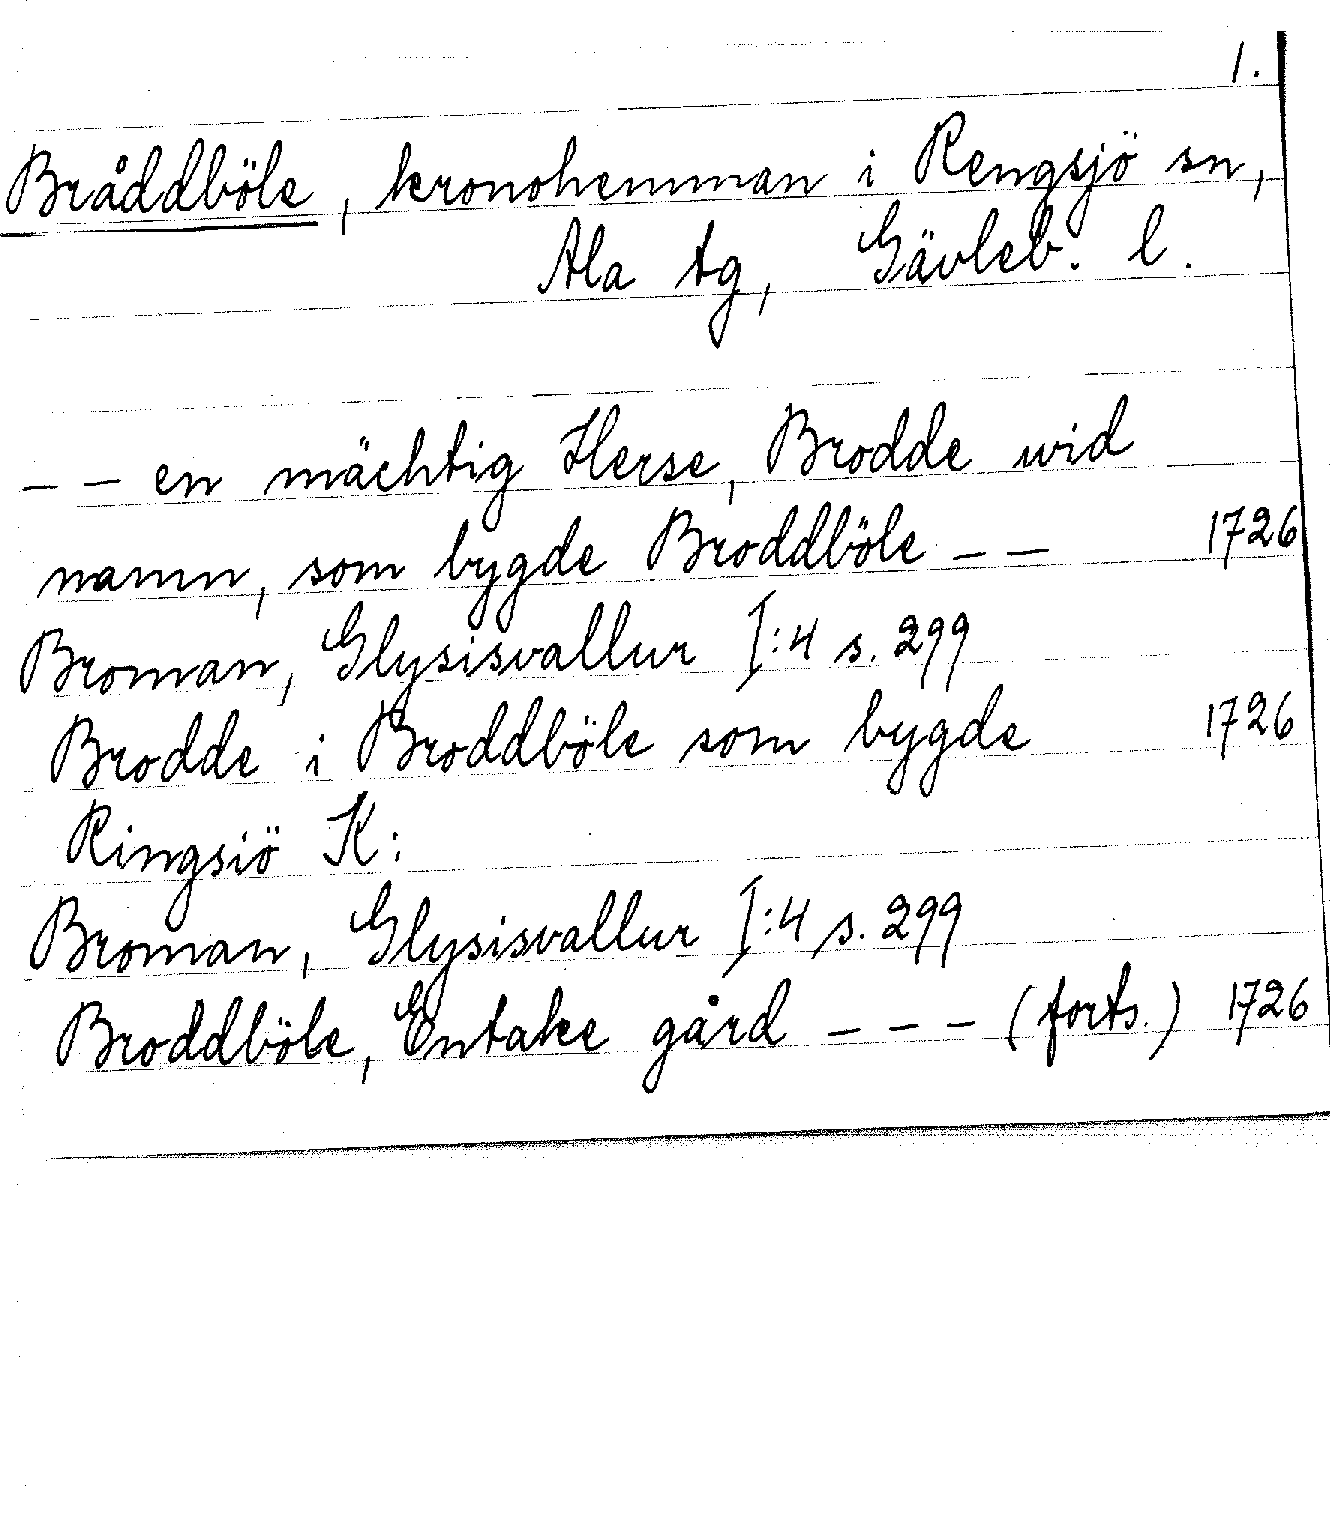 1.
Bråddböle, kronohemman i Rengsjö sn,
Ala tg, Gävleb. l.
– – en mächtig Herse, Brodde wid
namn, som bygde Broddböle – – 1726
Broman, Glysisvallur I:4 s. 299
Brodde i Broddböle som bygde 1726
Ringsiö K:
Broman, Glysisvallur I:4 s. 299
Broddböle, Entake gård – – – (forts.) 1726